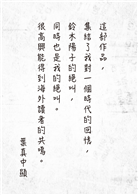 這部作品，
集結了我對一個時代的回憶，
鈴木陽子的絕叫，
同時也是我的絕叫。
很高興能得到海外讀者的共鳴。
葉真中顯